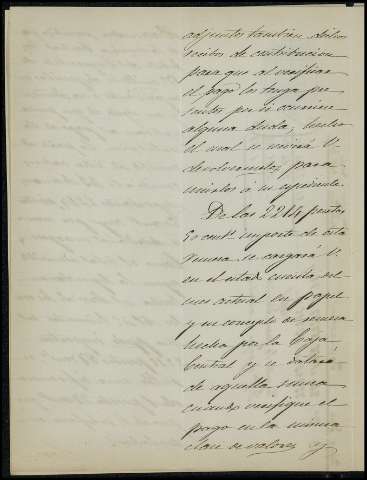 adjuntos tambien dichos
recibos de contribucion
para que al verificar
el pago los tenga pre
sentes por si ocurriese
alguna duda, hecho
el cual se servirá V.
devolvermelos para
unirlos á su espediente.
De las 2214 pesetas
50 cent.s importe de esta
remesa se cargará V.
en el estado cuenta del
mes actual en papel
y en concepto de remesa
hecha por la Caja
Central y se datará
de aquella suma
cuando verifique el
pago en la misma
clase de valores y